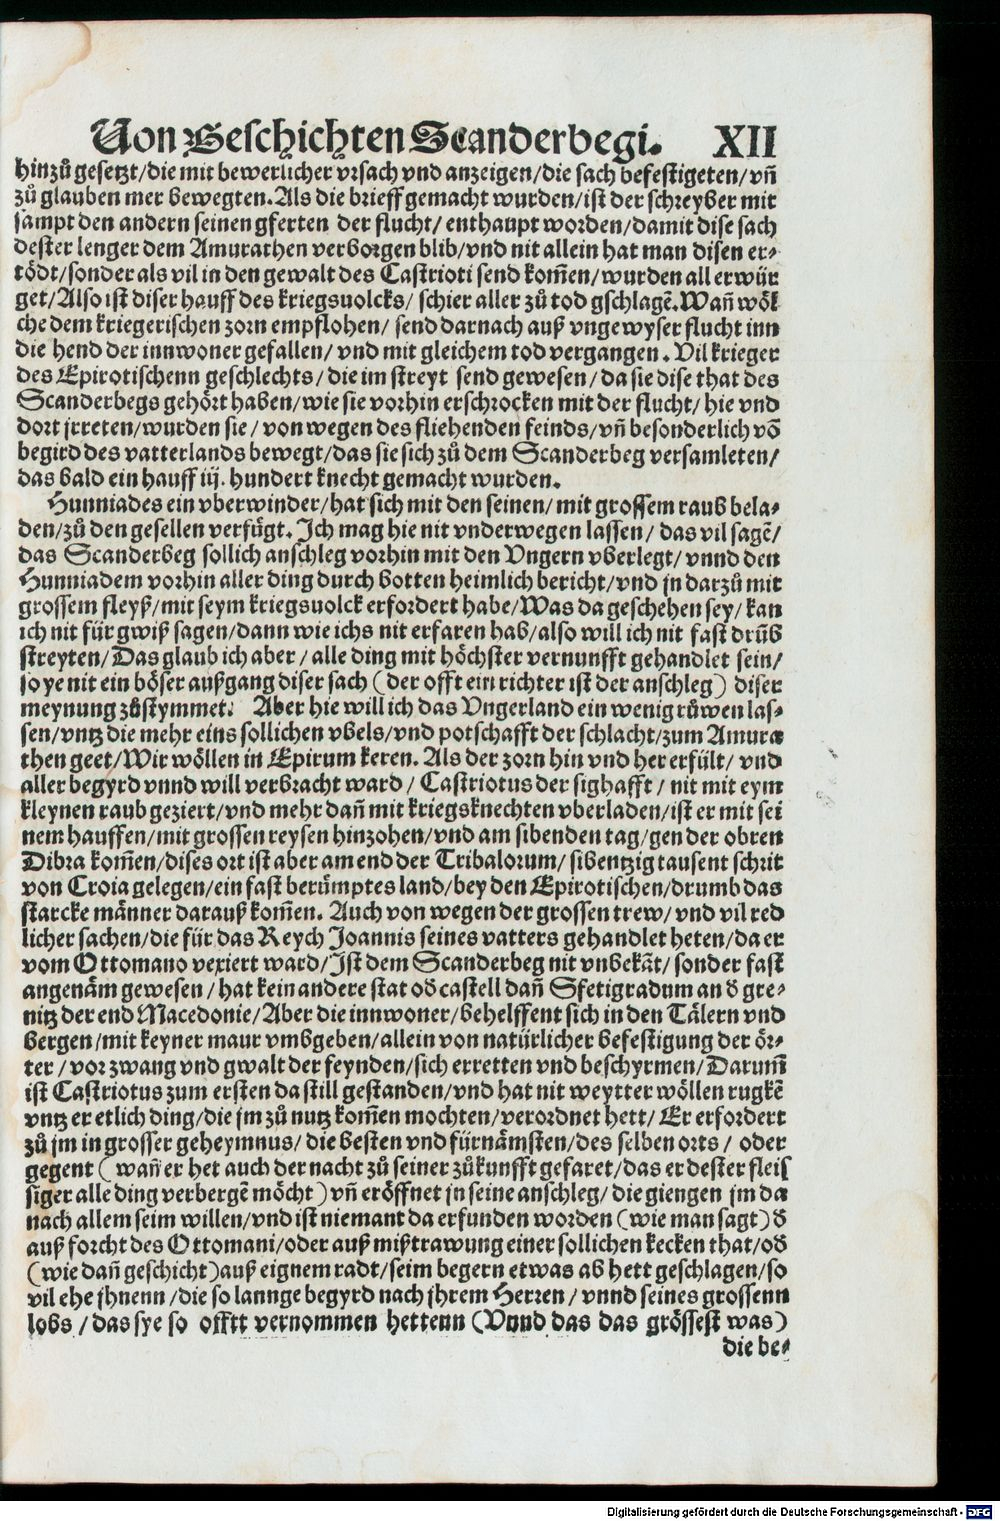 Von Geschichten Scanderbegi. XII
hinzů gesetzt/die mit bewerlicher vrsach vnd anzeigen/die sach befestigeten/vñ
zů glauben mer bewegten. Als die brieff gemacht wurden/ist der schreyber mit
sampt den andern seinen gferten der flucht/ enthaupt worden/damit dise sach
dester lenger dem Amurathen verborgen blib/vnd nit allein hat man disen er⸗
tödt/sonder als vil in den gewalt des Castrioti send kom̃en/wurden all erwür
get/Also ist diser hauff des kriegsuolcks/ schier aller zů tod gschlagẽ. Wañ wöl
che dem kriegerischen zorn empflohen/ send darnach auß vngewyser flucht inn
die hend der innwoner gefallen/ vnd mit gleichem tod vergangen. Vil krieger
des Epirotischenn geschlechts/die im streyt send gewesen/da sie dise that des
Scanderbegs gehört haben/wie sie vorhin erschrocken mit der flucht/ hie vnd
dort jrreten/wurden sie/ von wegen des fliehenden feinds/vñ besonderlich võ
begird des vatterlands bewegt/das sie sich zů dem Scanderbeg versamleten/
das bald ein hauff iij. hundert knecht gemacht wurden.
Hunniades ein vberwinder/hat sich mit den seinen/mit grossem raub bela⸗
den/zů den gesellen verfügt. Ich mag hie nit vnderwegen lassen/ das vil sagẽ/
das Scanderbeg sollich anschleg vorhin mit den Vngern vberlegt/vnnd den
Hunniadem vorhin aller ding durch botten heimlich bericht/vnd jn darzů mit
grossem fleyß/mit seym kriegsuolck erfordert habe/Was da geschehen sey/ kan
ich nit für gwiß sagen/dann wie ichs nit erfaren hab/also will ich nit fast drüb
streyten/Das glaub ich aber/alle ding mit höchster vernunfft gehandlet sein/
so ye nit ein böser außgang diser sach (der offt ein richter ist der anschleg) diser
meynung zůstymmet. Aber hie will ich das Vngerland ein wenig rüwen las⸗
sen/vntz die mehr eins sollichen vbels/vnd potschafft der schlacht/zum Amura
then geet/Wir wöllen in Epirum keren. Als der zorn hin vnd her erfült/ vnd
aller begyrd vnnd will verbracht ward/ Castriotus der sighafft/ nit mit eym
kleynen raub geziert/vnd mehr dañ mit kriegsknechten vberladen/ist er mit sei
nem hauffen/mit grossen reysen hinzohen/vnd am sibenden tag/gen der obren
Dibra kom̃en/dises ort ist aber am end der Tribalorum/ sibentzig tausent schrit
von Croia gelegen/ein fast berümptes land/bey den Epirotischen/drumb das
starcke männer darauß kom̃en. Auch von wegen der grossen trew/ vnd vil red
licher sachen/die für das Reych Joannis seines vatters gehandlet heten/da er
vom Ottomano vexiert ward/Ist dem Scanderbeg nit vnbekãt/sonder fast
angenäm gewesen/hat kein andere stat oď castell dañ Sfetigradum an ď gre⸗
nitz der end Macedonie/Aber die innwoner/behelffent sich in den Tälern vnd
bergen/mit keyner maur vmbgeben/allein von natürlicher befestigung der ör⸗
ter/vor zwang vnd gwalt der feynden/sich erretten vnd beschyrmen/Darum̃
ist Castriotus zum ersten da still gestanden/vnd hat nit weytter wöllen rugkẽ
vntz er etlich ding/die jm zů nutz kom̃en mochten/verordnet hett/ Er erfordert
zů jm in grosser geheymnus/ die besten vnd fürnämsten/des selben orts/ oder
gegent (wañ er het auch der nacht zů seiner zůkunfft gefaret/das er dester fleis
siger alle ding verbergẽ möcht) vñ eröffnet jn seine anschleg/ die giengen jm da
nach allem seim willen/vnd ist niemant da erfunden worden (wie man sagt) ď
auß forcht des Ottomani/oder auß mißtrawung einer sollichen kecken that/oď
(wie dañ geschicht) auß eignem radt/seim begern etwas ab hett geschlagen/so
vil ehe jhnenn/die so lannge begyrd nach jhrem Herren/ vnnd seines grossenn
lobs/das sye so offtt vernommen hettenn (Vnnd das das grössest was)
die be⸗
Digitalisierung gefördert durch die Deutsche Forschungsgemeinschaft - DFG